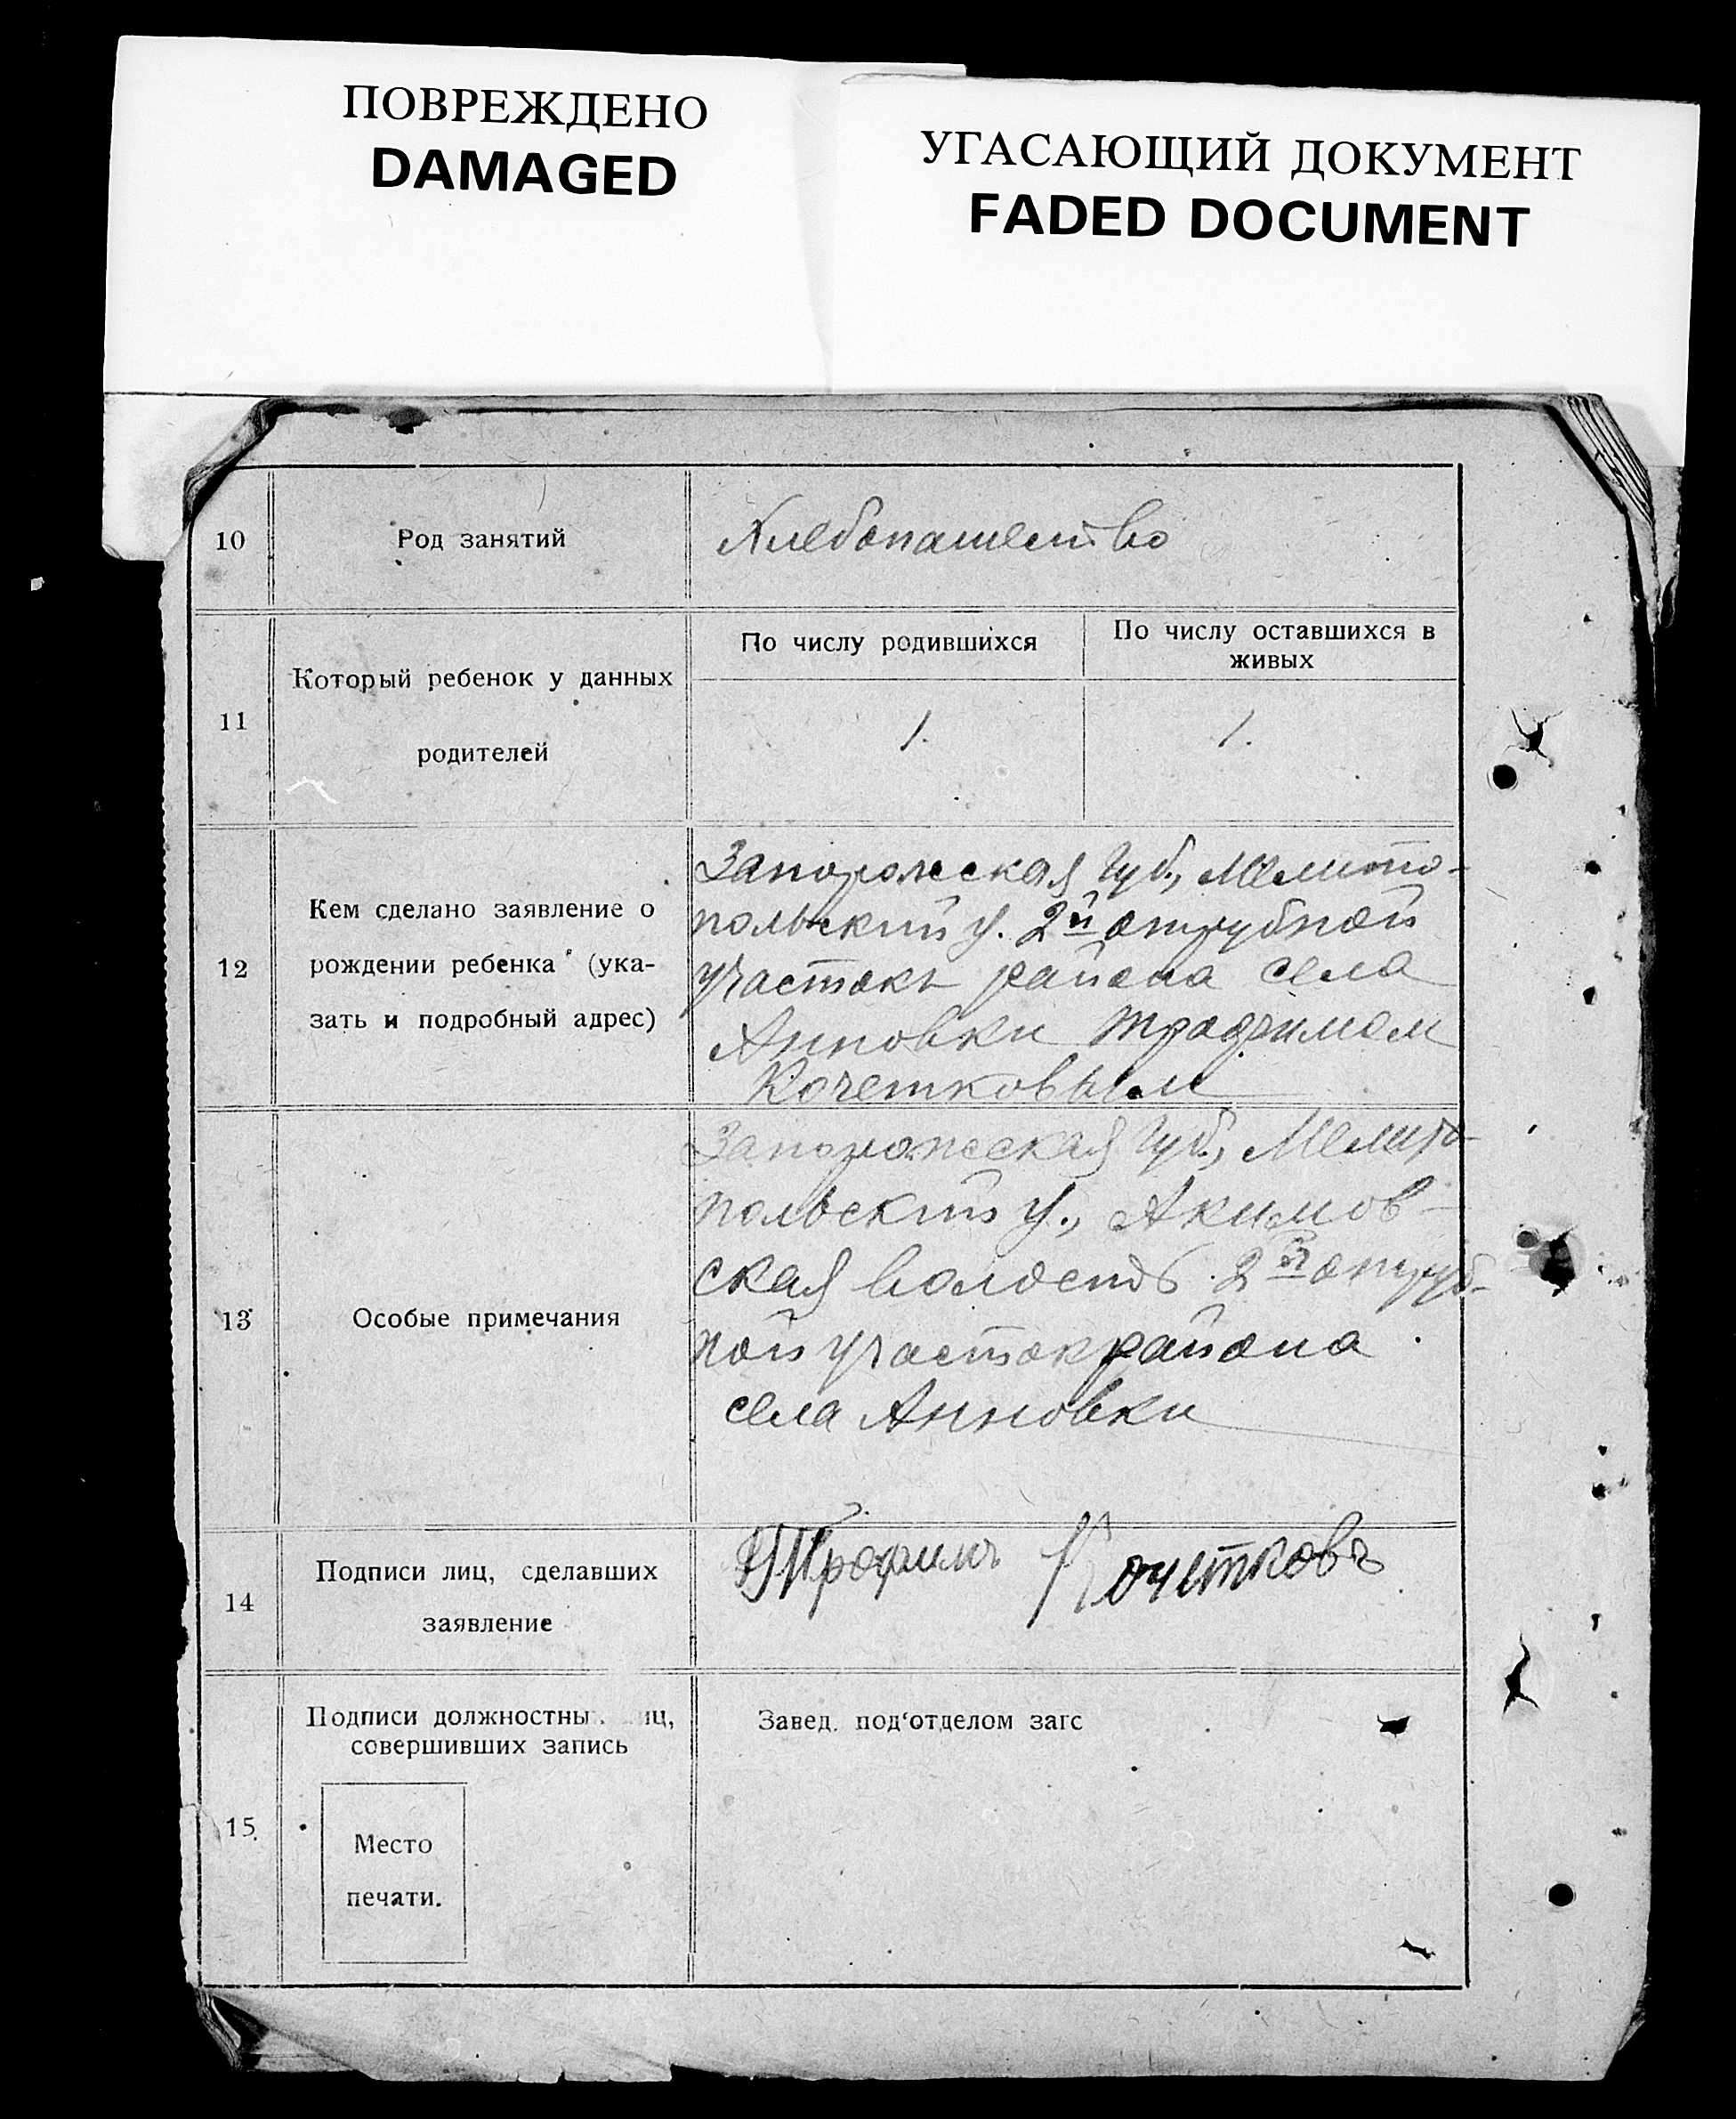 ПОВРЕЖДЕНО
DAMAGED
УГАСАЮЩИЙ ДОКУМЕНТ
FADED DOCUMENT
10
Род занятий
Хлебопашество
11
Который ребенок у данных
родителей
По числу родившихся
По числу оставшихся в
живых
1.
1.
12
Кем сделано заявление о
рождении ребенка (ука-
зать и подробный адрес)
Запорожская губ., Мелито-
польский у. 2й отрубной
участок района села
Анновки Трофимом
Кочетковым
13
Особые примечания
Запорожская губ., Мелито-
польский у., Акимов-
ская волость 2й отруб-
ной участок района
села Анновки
14
Подписи лиц, сделавших
заявление
Трофимъ Кочетковъ
15.
Подписи должностны иц,
совершивших запись
Место
печати.
Завед. под'отделом загс